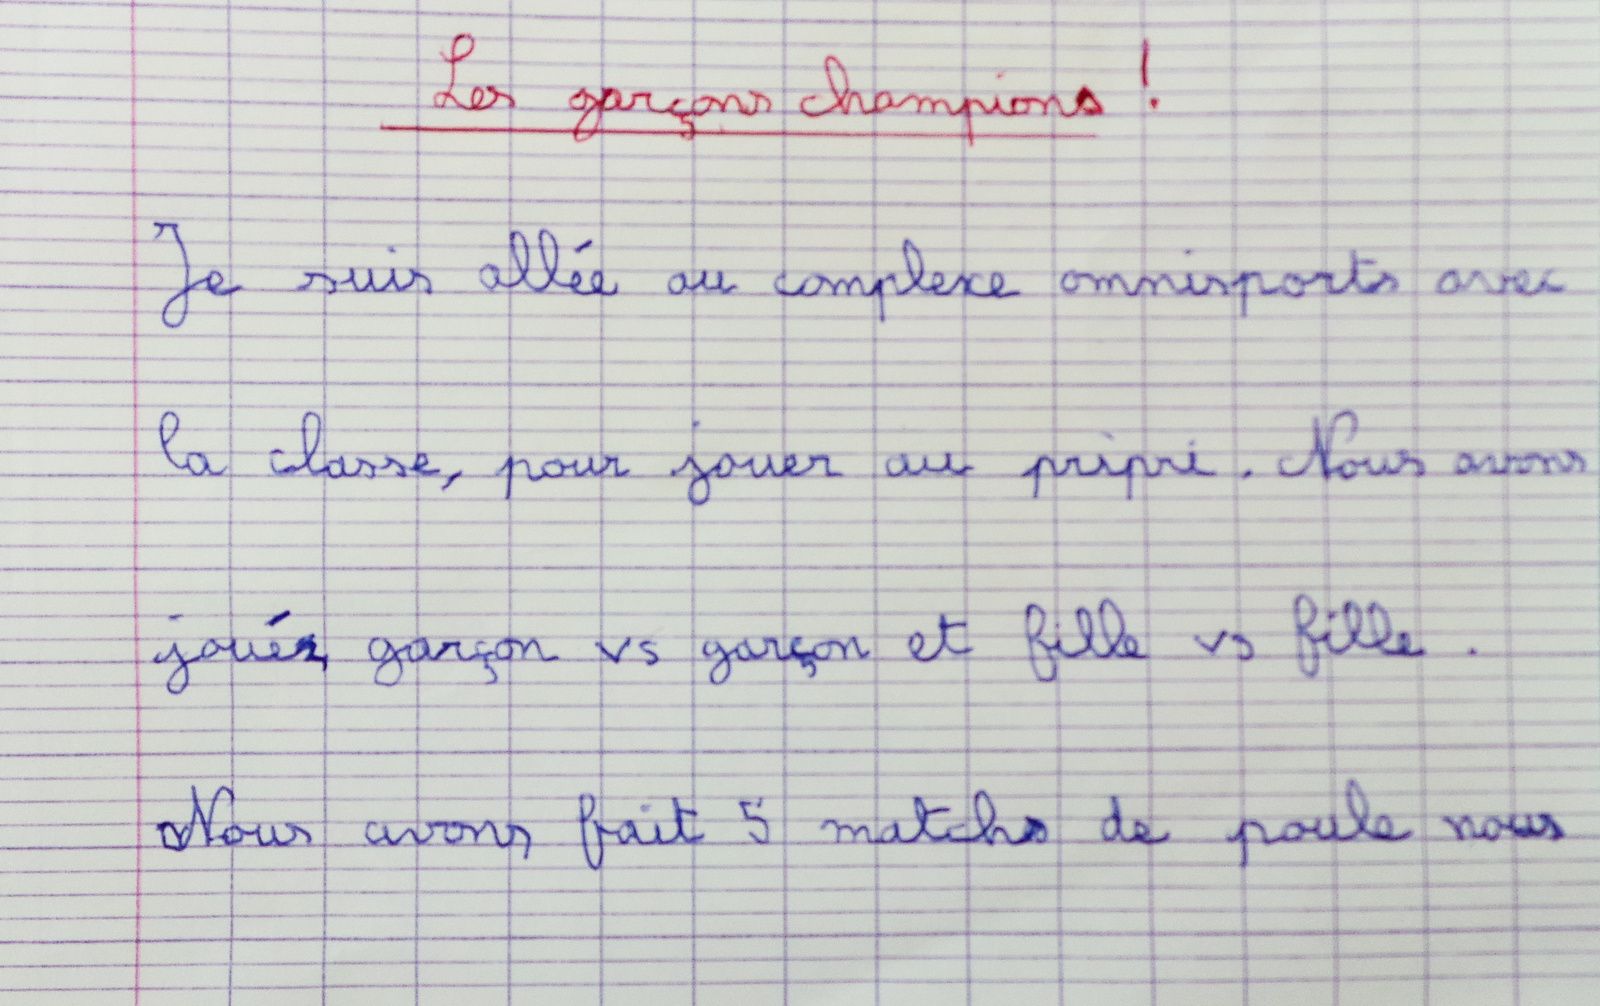 Les garçons champions !
Je suis allée au complexe omnisports avec
la classe, pour jouer au pripri. Nous avons
jouéz garçon vs garçon et fille vs fille.
Nous avons fait 5 matchs de poule nous